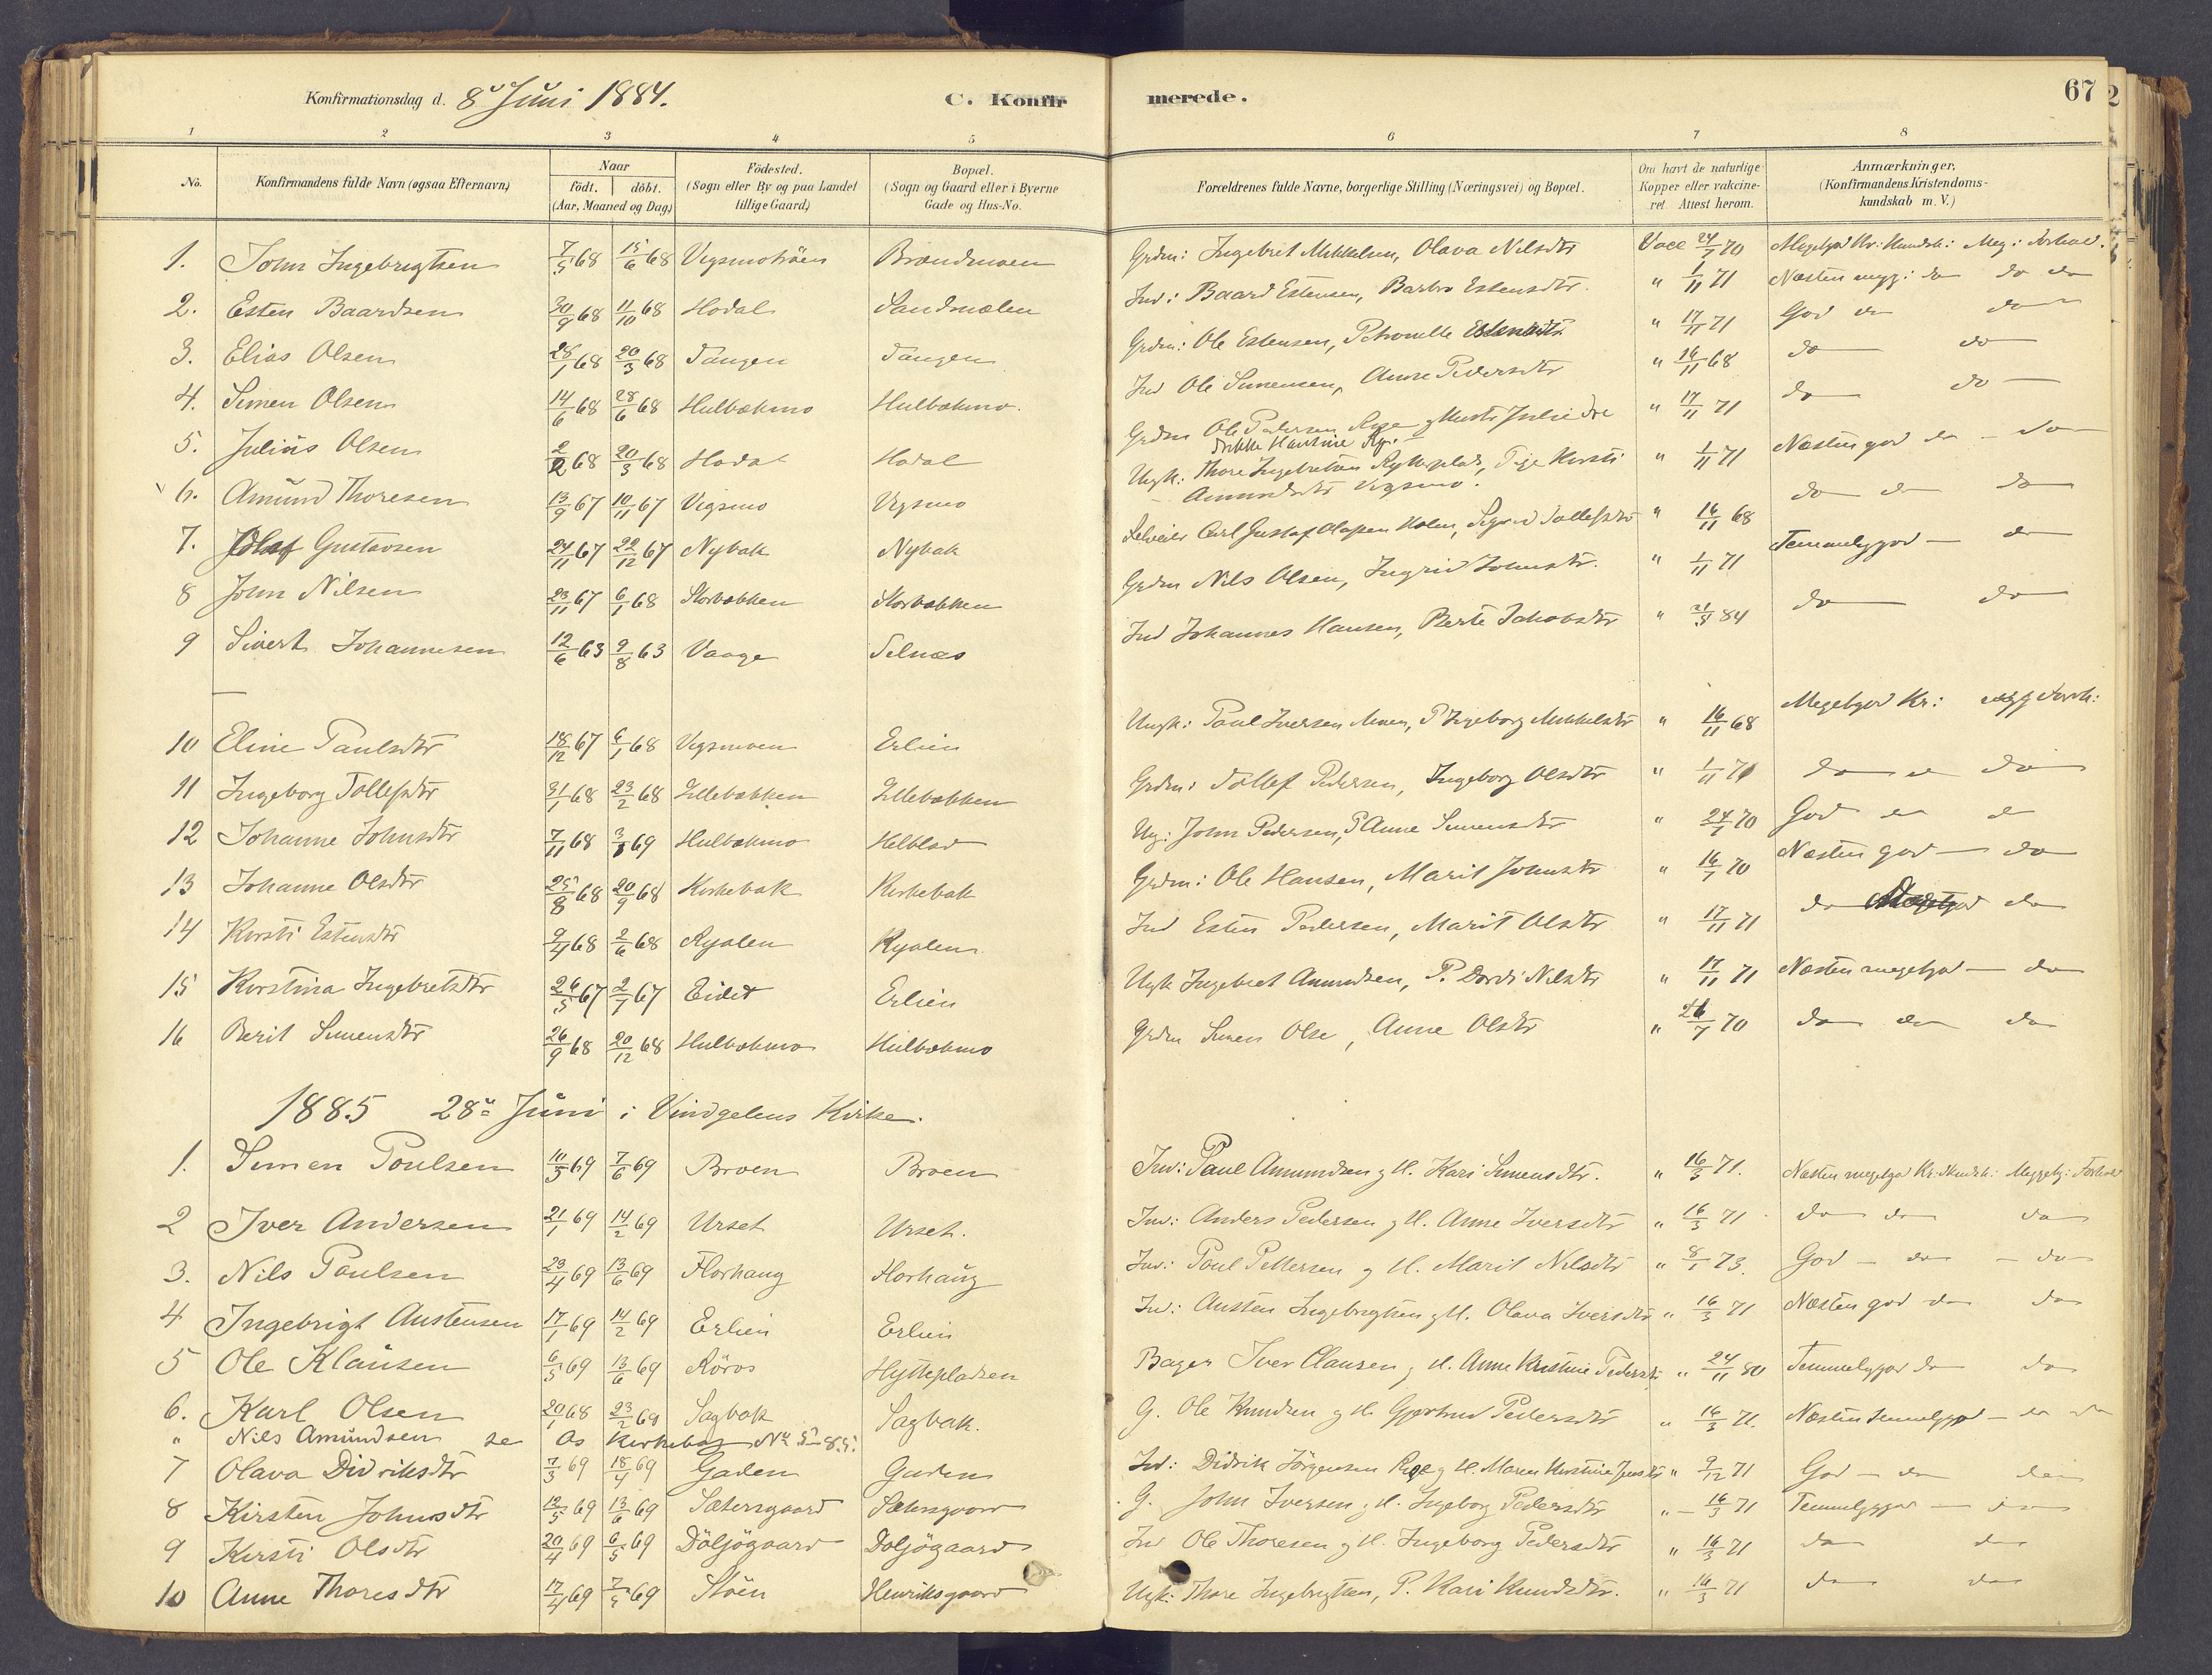 Konfirmationsdag d. 8de Juni 1884. C. Konfirmerede. 67
1 2 3 4 5 6 7 8
No. Konfirmandens fulde Navn (ogsaa Efternavn) Naar födt. döbt. (Aar, Maaned og Dag) Födested. (Sogn eller By og paa Landet tillige Gaard) Bopæl. (Sogn og Gaard eller i Byerne Gade og Hus-No. Forældrenes fulde Navne, borgerlige Stilling (Næringsvei) og Bopæl. Om havt de naturlige Kopper eller vakcineret. Attest herom. Anmærkninger, (Konfirmandens Kristendomskundskab m. V.)
1. John Ingebrigtsen 7/5 68 15/6 68 Vegsmotrøen Brændmoen Grdm: Ingebret Mikkelsen, Olava Nilsdtr Vacc 24/7 70 Megetgod Kr: Kundsk: Meg: Forhold.
2. Esten Baardsen 30/9 68 11/10 68 Hodal Sandmælen Ind: Baard Estensen, Barbro Estensdtr. " 1/11 71 Næsten megg: do do do
3. Elias Olsen 28/1 68 20/3 68 Tangen Tangen Grdm: Ole Estensen, Petronelle Estensdtr " 17/11 71 God do do
4. Simen Olsen 14/6 68 28/6 68 Hulbækmo Hulbækmo. Ind Ole Simensen, Anne Pedersdtr " 16/11 68 do do
5. Julius Olsen 2/2 68 20/3 68 Hodal Hodal Grdm Ole Pedersen " 17/11 71 do do
6. Amund Thoresen 13/9 67 10/11 67 Vegsmo Vegsmo Ungk: Thore Ingebretsen Rytterplads, Pige Kirsti Amundsdtr Vegsmo. " 1/11 71 Næsten god do do
7. Olaf Gustavsen 24/11 67 22/12 67 Nybak Nybak Selveier Carl Gustaf Olafsen Holm, Sigrid Tollefsdtr " 16/11 68 do do do
8 John Nilsen 23/11 67 6/1 68 Storbækken Storbækken Grdm Nils Olsen, Ingrid Johnsdtr. " 1/11 71 Temmelig god do
9 Sivert Johannesen 12/6 63 9/8 63 Vaage Selnæs Ind Johannes Hansen, Berte Jakobsdtr " 21/5 84 do do
10 Eline Paulsdtr 18/12 67 6/1 68 Vegsmoen Erlien Ungk: Paul Iversen Moen, P Ingeborg Mikkelsdtr " 16/11 68 Megetgod Kr: megg Forh:
11 Ingeborg Tollefsdtr 31/1 68 23/2 68 Lillebækken Lillebækken Grdm: Tollef Pedersen, Ingeborg Olsdtr " 1/11 71 do do
12 Johanne Johnsdtr 7/11 68 3/8 69 Hulbækmo Ug: John Pedersen, P Anne Simensdtr " 24/7 70 God do do
13 Johanne Olsdtr 25/8 68 20/9 68 Kirkebak Kirkebak Grdm: Ole Hansen, Marit Johnsdtr " 16/7 70 Næsten god do
14 Kirsti Estensdtr 9/4 68 2/6 68 Ryalen Ryalen Ind Esten Pedersen, Marit Olsdtr " 17/11 71 do do
15 Kirstina Ingebretsdtr 26/5 67 2/7 67 Eidet Erlien Ugk Ingebret Amundsen, P. Dordi Nilsdtr " 17/11 71 Næsten megetgod do
16 Berit Simensdtr 26/9 68 20/12 68 Hulbækmo Hulbækmo Grdm Simen Olsen, Anne Olsdtr " 26/7 70 do do do
1885 28de Juni i Vindgelens Kirke.
1. Simen Poulsen 10/5 69 7/6 69 Broen Broen Ind: Paul Amundsen og H. Kari Simensdtr. " 16/3 71. Næsten megetgod Kr. Kundsk: Meggetg: Forhold
2 Iver Andersen 21/1 69 14/2 69 Urset Urset. Ind: Anders Pedersen og H. Anne Iversdtr " 16/3 71 do do do
3. Nils Poulsen 23/4 69 13/6 69 Florhaug Florhaug Ind: Poul Pettersen og H. Marit Nilsdtr " 8/1 73. God do do
4 Ingebrigt Austensen 17/1 69 14/2 69 Erlien Erlien Ind: Austen Ingebrigtsen og H. Olava Iversdtr " 16/3 71 Næsten god do do
5 Ole Klausen 6/5 69 13/6 69 Röros Hyttepladsen Bager Iver Clausen og H. Anne Kirstine Pedersdtr " 24/11 80 Temmeliggod do do
6. Karl Olsen 20/1 68 23/2 69 Sagbak Sagbak. G. Ole Knudsen og H. Gjertrud Pedersdtr " 16/3 71. Næsten temmelggod do do
" Nils Amundsen se Os Kirkebog No 5 85.
7 Olava Didriksdtr 7/3 69 18/4 69 Gaden Gaden Ind: Didrik Jörgensen og H. Maren Kirstine " 9/12 71 God do do
8 Kirsten Johnsdtr 12/5 69 13/6 69 Sætersgaard Sætersgaard G. John Iversen og H. Ingeborg Pedersdtr " 16/3 71 Temmeliggod do
9 Kirsti Olsdtr 20/4 69 6/5 69 Döljögaard Doljögaard Ind Ole Thoresen og H. Ingeborg Pedersdtr " 16/3 71 do do
10 Anne Thoresdtr 17/4 69 7/5 69 Støen Henriksgaard Ugk: Thore Ingebrigtsen, P. Kari Knudsdtr. " 16/3 71 do do